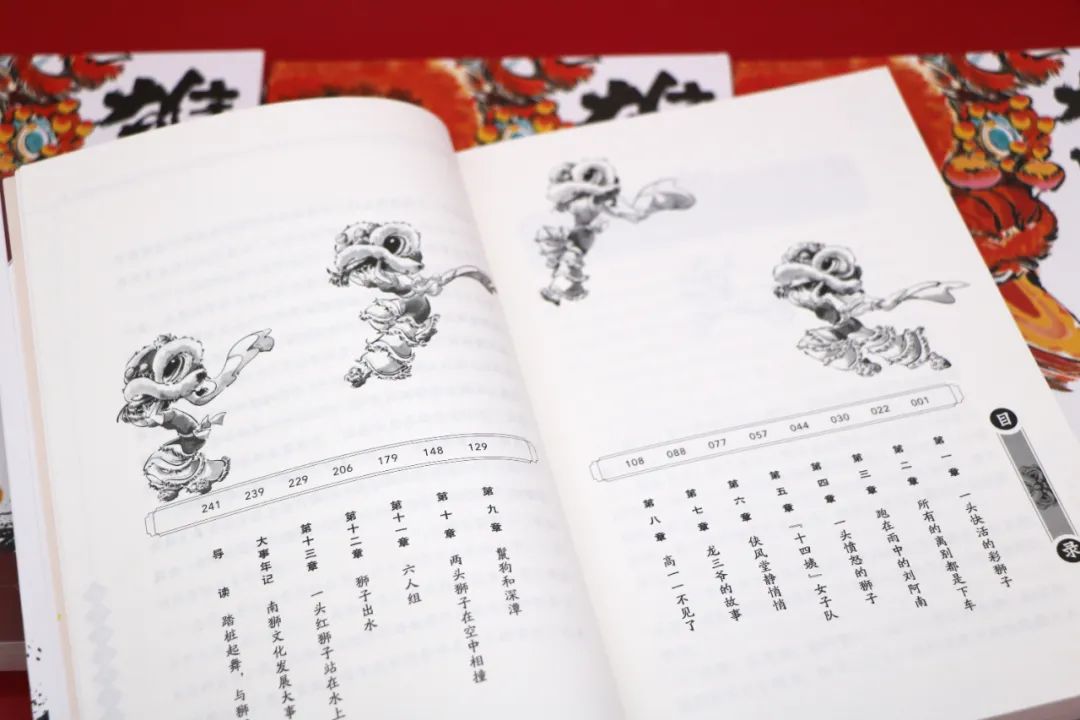 目录
001 第一章 一头快活的彩狮子
022 第二章 所有的离别都是下车
030 第三章 跑在雨中的刘阿南
044 第四章 一头愤怒的狮子
057 第五章 「十四姨」女子队
077 第六章 伏风堂静悄悄
088 第七章 龙三爷的故事
108 第八章 高一一不见了
129 第九章 鬣狗和深潭
148 第十章 两头狮子在空中相撞
179 第十一章 六人组
206 第十二章 狮子出水
229 第十三章 一头红狮子站在水上
239 大事年记 南狮文化发展大事
241 导读 踏桩起舞，与狮